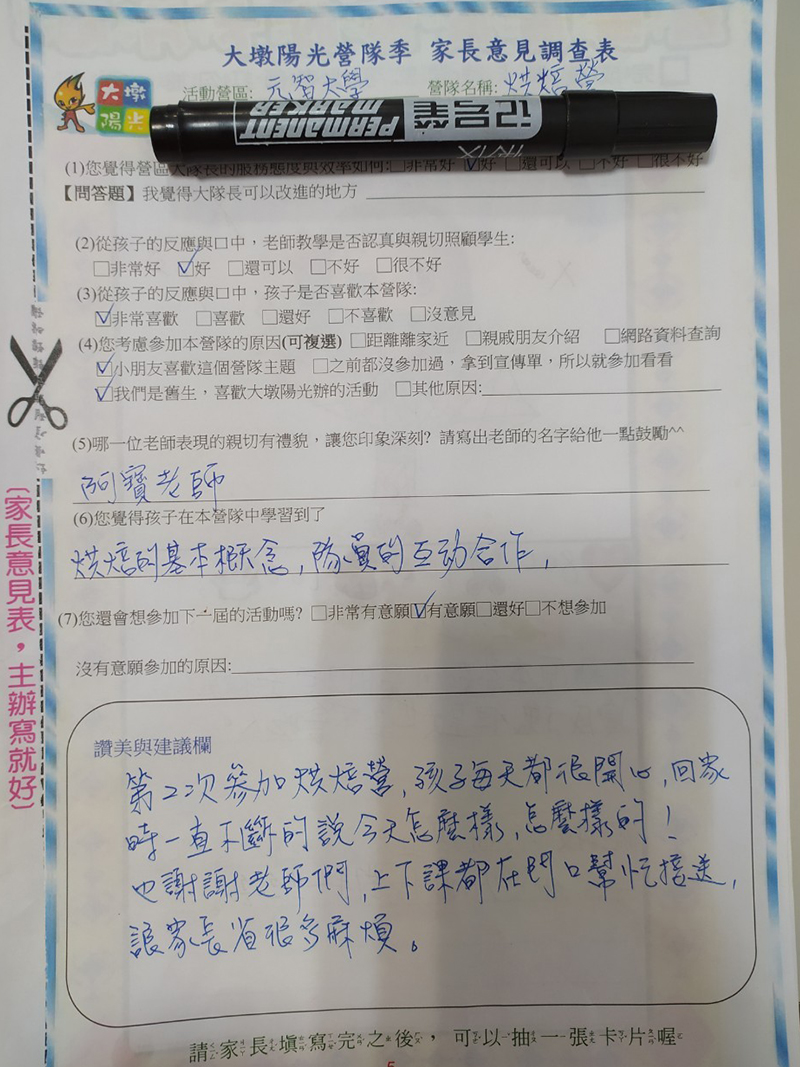 大墩陽光營隊季 家長意見調查表
大墩
陽光
活動營區: 元智大學 營隊名稱: 烘焙營
PERMANENT MARKER
记号笔
(1)您覺得營區大隊長的服務態度與效率如何:☐非常好 ☑好 ☐還可以 ☐不好 ☐很不好
【問答題】我覺得大隊長可以改進的地方
(2)從孩子的反應與口中，老師教學是否認真與親切照顧學生:
☐非常好 ☑好 ☐還可以 ☐不好 ☐很不好
(3)從孩子的反應與口中，孩子是否喜歡本營隊:
☑非常喜歡 ☐喜歡 ☐還好 ☐不喜歡 ☐沒意見
(4)您考慮參加本營隊的原因(可複選) ☐距離離家近 ☐親戚朋友介紹 ☐網路資料查詢
☑小朋友喜歡這個營隊主題 ☐之前都沒參加過，拿到宣傳單，所以就參加看看
☑我們是舊生，喜歡大墩陽光辦的活動 ☐其他原因:
(5)哪一位老師表現的親切有禮貌，讓您印象深刻? 請寫出老師的名字給他一點鼓勵^^
阿寶老師
(6)您覺得孩子在本營隊中學習到了
烘焙的基本概念, 隊員的互動合作,
(7)您還會想參加下一屆的活動嗎? ☐非常有意願☑有意願☐還好☐不想參加
沒有意願參加的原因:
讚美與建議欄
第2次參加烘焙營, 孩子每天都很開心, 回家
時一直不斷的說今天怎麼樣, 怎麼樣的!
也謝謝老師們, 上下課都在門口幫忙接送,
讓家長省很多麻煩。
請家長填寫完之後，可以抽一張卡片喔
5
〔家長意見表，主辦寫就好〕